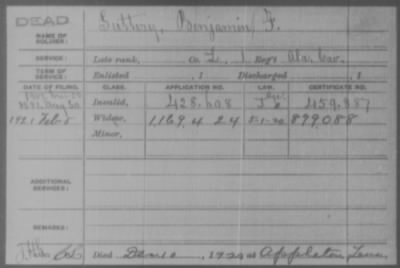 DEAD
NAME OF SOLDIER:
Guttery, Benjamin F.
SERVICE:
Late rank, Co. L, 1 Reg't Ala. Cav.
TERM OF SERVICE:
Enlisted , 1 Discharged , 1
DATE OF FILING. CLASS. APPLICATION NO. LAW. CERTIFICATE NO.
Invalid, 428,608 459,887
1921 Feb-5 Widow, 1,169,424 5-1-20 899,088
Minor,
ADDITIONAL SERVICES:
REMARKS:
Died 1920 at Appleton Tenn.